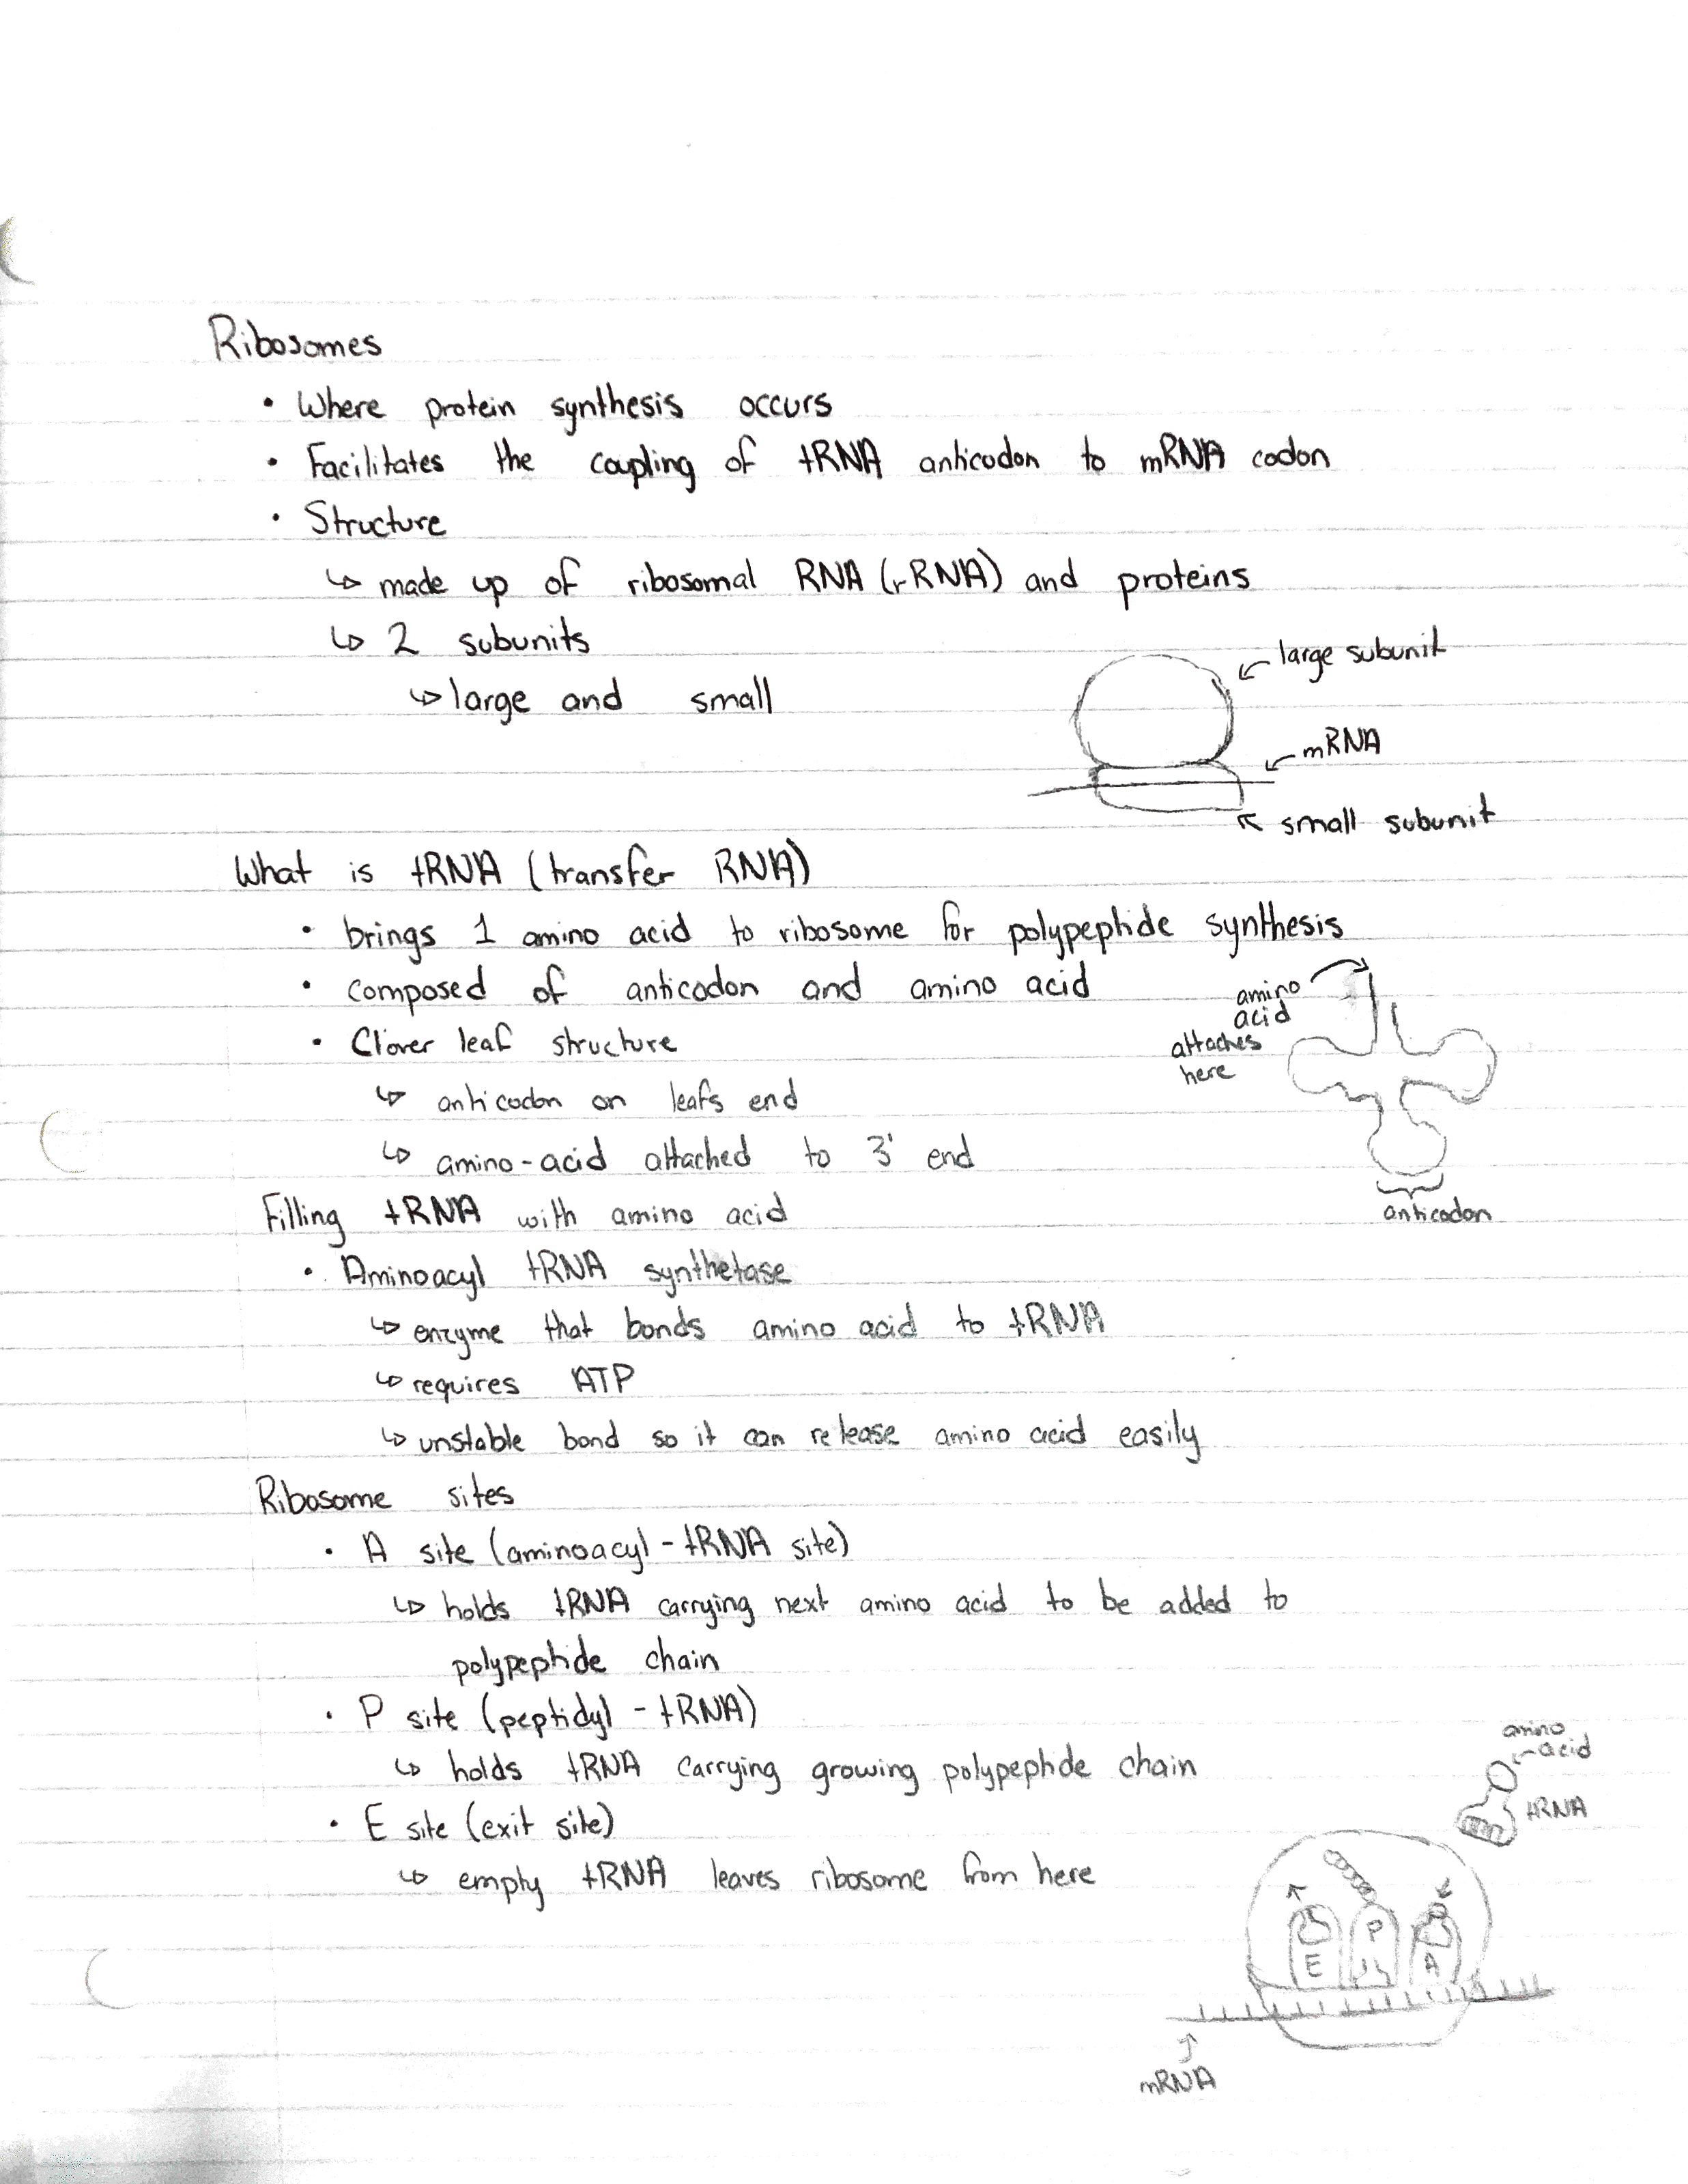 Ribosomes
• Where protein synthesis occurs
• Facilitates the coupling of tRNA anticodon to mRNA codon
• Structure
↳ made up of ribosomal RNA (rRNA) and proteins
↳ 2 subunits
↳ large and small
large subunit
mRNA
small subunit
What is tRNA (transfer RNA)
• brings 1 amino acid to ribosome for polypeptide synthesis
• composed of anticodon and amino acid
• Clover leaf structure
↳ anticodon on leafs end
↳ amino-acid attached to 3' end
amino
acid
attaches
here
anticodon
Filling tRNA with amino acid
• Aminoacyl tRNA synthetase
↳ enzyme that bonds amino acid to tRNA
↳ requires ATP
↳ unstable bond so it can release amino acid easily
Ribosome sites
• A site (aminoacyl - tRNA site)
↳ holds tRNA carrying next amino acid to be added to
polypeptide chain
• P site (peptidyl - tRNA)
↳ holds tRNA carrying growing polypeptide chain
• E site (exit site)
↳ empty tRNA leaves ribosome from here
amino
acid
tRNA
E P A
mRNA